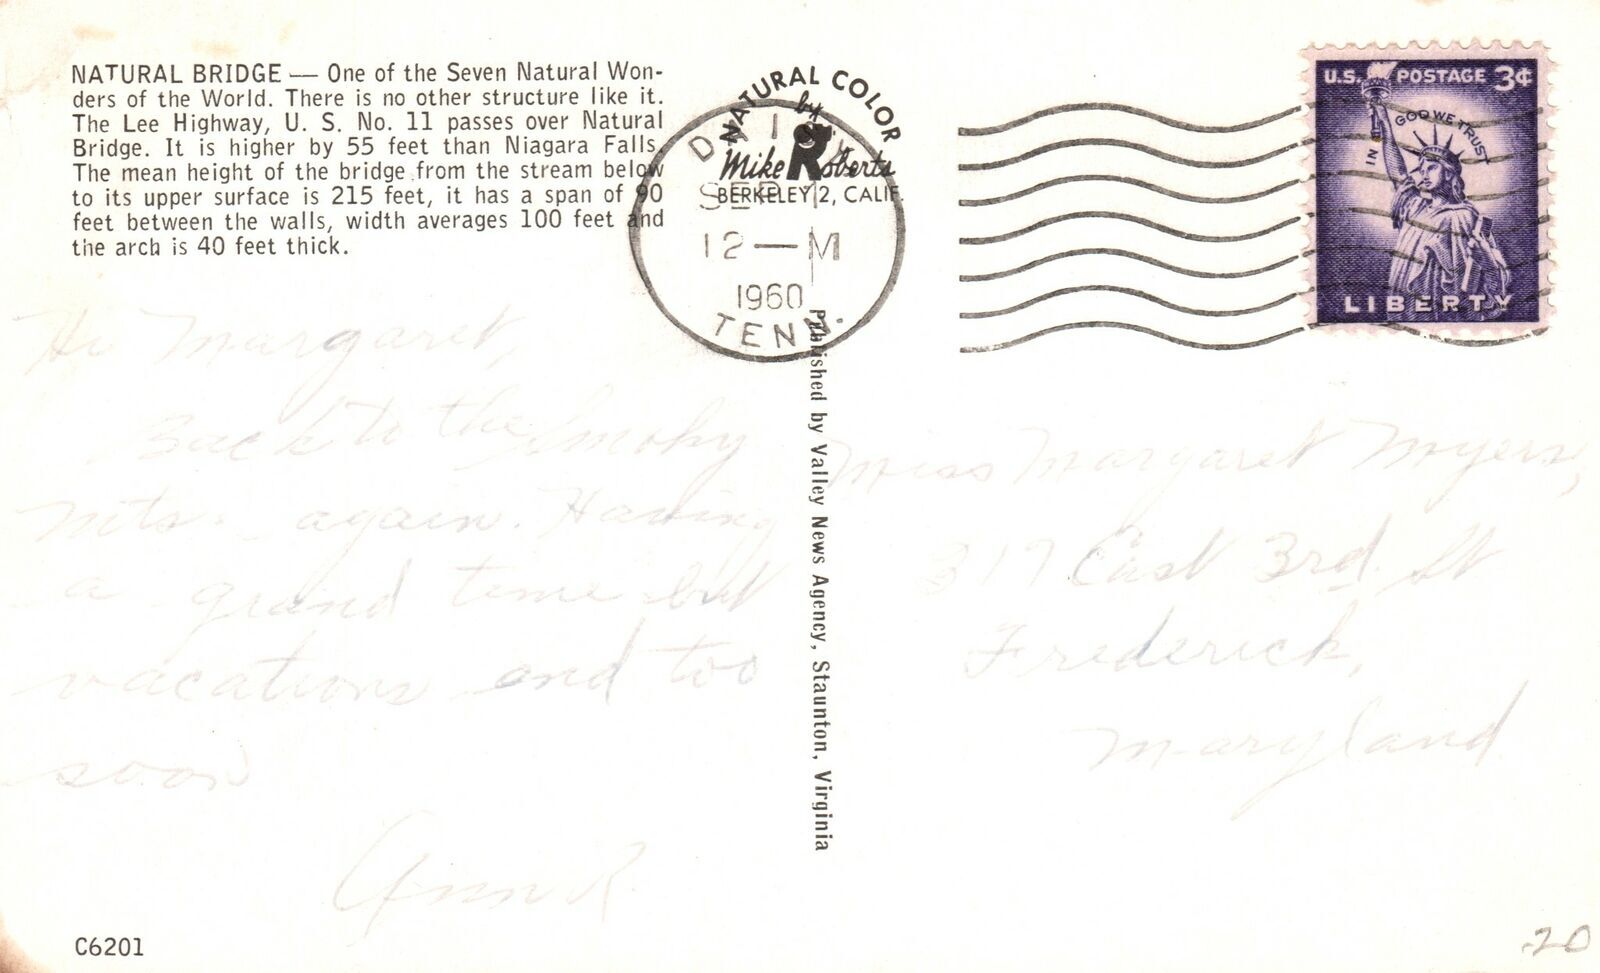 NATURAL BRIDGE — One of the Seven Natural Won-
ders of the World. There is no other structure like it.
The Lee Highway, U. S. No. 11 passes over Natural
Bridge. It is higher by 55 feet than Niagara Falls.
The mean height of the bridge from the stream below
to its upper surface is 215 feet, it has a span of 90
feet between the walls, width averages 100 feet and
the arch is 40 feet thick.
NATURAL COLOR
by
Mike Roberts
BERKELEY 2, CALIF.
SEP 1
12 — M
1960
TENN.
U.S. POSTAGE 3¢
IN GOD WE TRUST
LIBERTY
Hi Margaret,
Back to the Smoky
Mts. again. Having
a grand time but
vacations end too
soon
Ann R.
Published by Valley News Agency, Staunton, Virginia
Miss Margaret Myers,
317 East 3rd St
Frederick,
Maryland
C6201
20